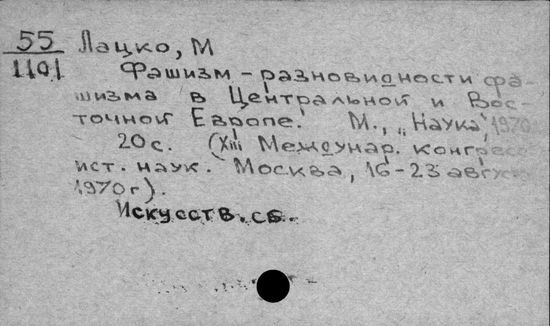 55 Лацко, М
1101 Фашизм – разновидности фа-
шизма в Центральной и Вос-
точной Европе. М., „Наука", 1970
20с. (XIII Междунар. конгресс
ист. наук. Москва, 16-23 августа
1970г).
Искусств. сб.